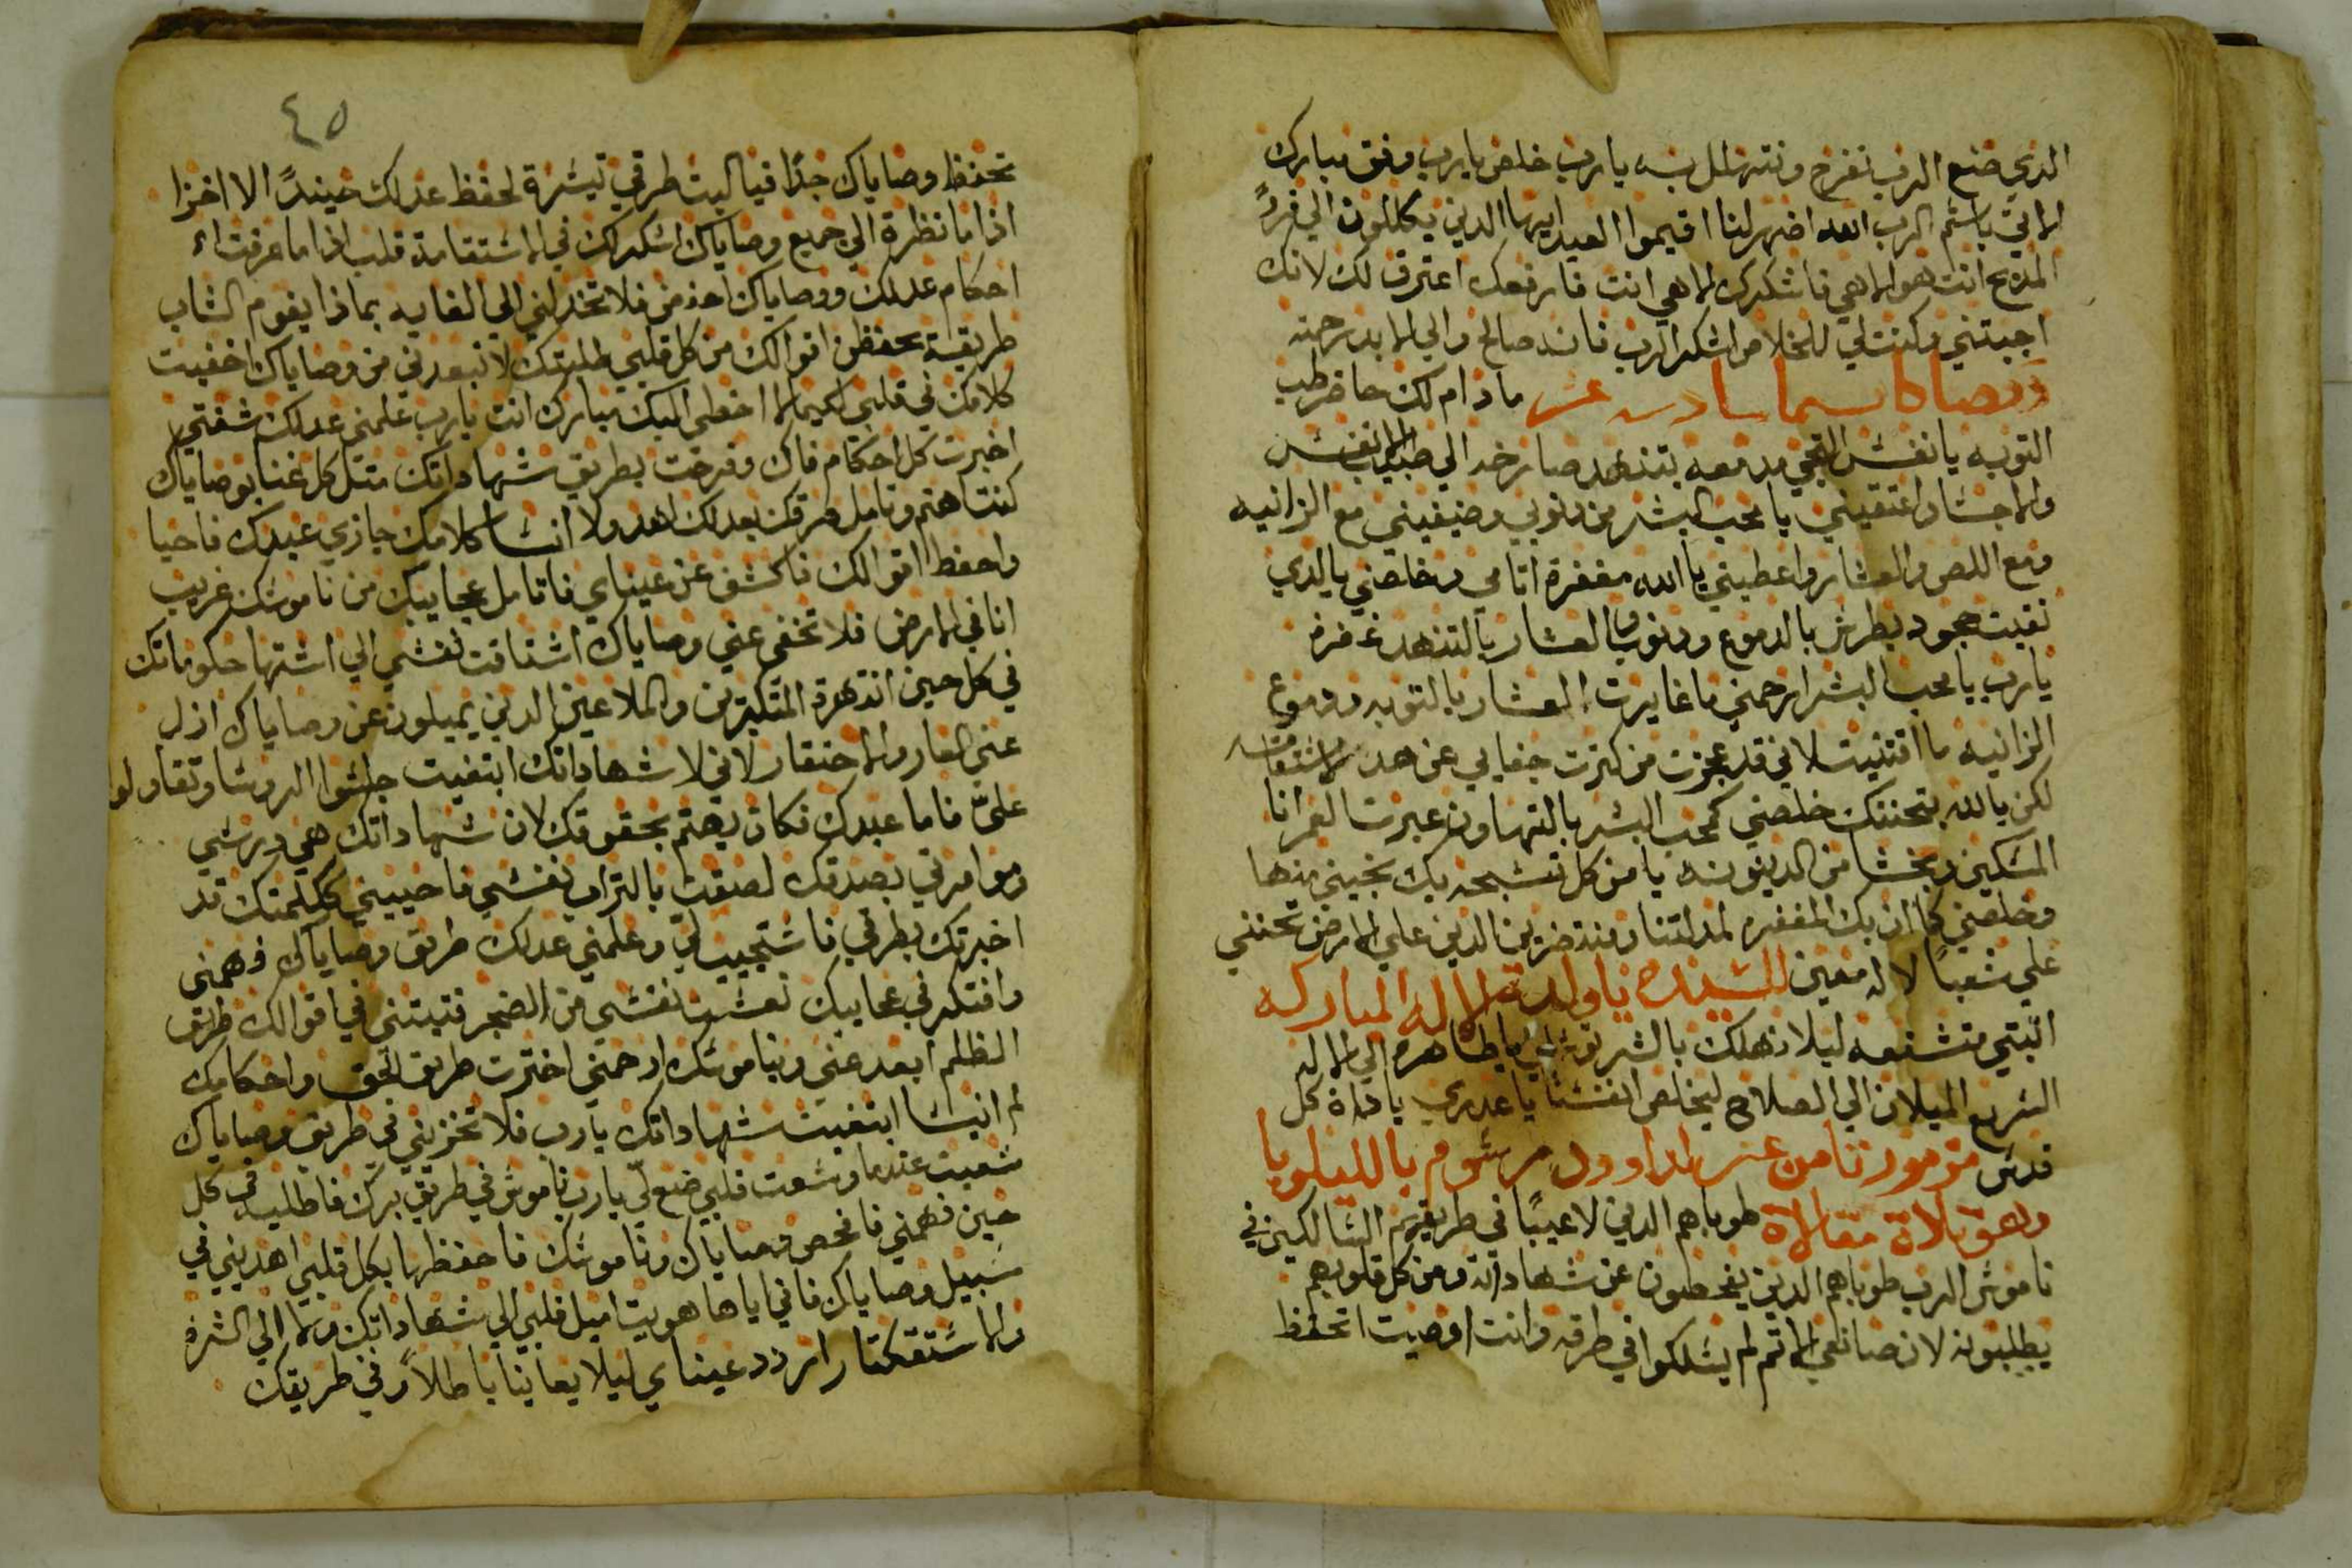 الذي صنع الرب نفرح ونتهلل به يا رب خلص يا رب وفق مبارك
الاتي باسم الرب الله اضهر لنا اقيموا العيد ايها الدين يكللون الي قرن
المدبح انت هو الاهي فاشكرك الاهي انت فارفعك اعترف لك لانك
اجبتني وكنت لي للخلاص اشكر الرب فانه صالح والي الابد رحمته
مادام لك حاضر طب
التوبه يا نفس القحي مدمعه بتنهد صارخه الي طبيب الانفس
والاجساد اعتقيني يا محب البشر من دنوبي وضيفيني مع الزانيه
ومع اللص والعشار واعطيني يا الله مغفرة اتامي وخلصني يا الدي
نقيت جحود بطرس بالدموع ودنوب العشار بالتنهد غفرة
يا رب يا محب البشر ارحمني ما غايرت العشار بالتوبه ودموع
الزانيه ما اقتنيت لاني قد عجزت من كترت جفايي عن هده الاستقامه
لكن يا الله بتحننك خلصني كمحب البشر بالتهاون عبرت العمر انا
المسكين وبخشا من الدينونه يا من كل تسبحه بك نجيني منها
وخلصني كما ان بك المغفره لمدلتنا ومتدضرين الدين علي الارض تحنني
علي شعبا لا له معين للسيده يا والدة الاله المباركه
اتبتي متشفعه ليلا نهلك بالشر توسلي يا طاهره الي الاله
السريع الميلان الي الصلاح ليخلص انفسنا يا عدري يا دواة كل
قدس مزمور تامن عشر لداوود مرسوم بالليلويا
وهو تلاة مقالاة طوباهم الدين لا عيبا في طريقهم السالكين في
ناموس الرب طوباهم الدين يفحصون عن شهاداته ومن كل قلوبهم
يطلبونه لان صانعي الاتم لم يسلكوا في طرقه وانت اوصيت اتحفظ
٤٥
تحفظ وصاياك جدا فيا ليت طرقي تيسرة لحفظ عدلك حينيد الا اخزا
اذا ما نظرة الي جميع وصاياك اشكرك في استقامة قلب اذا ما عرفت
احكام عدلك ووصاياك احذ من فلا تخدلني الي الغايه بماذا يقوم الشاب
طريقه بحفظه اقوالك من كل قلبي طلبتك لا تبعدني من وصاياك اخفيت
كلامك في قلبي لكيما لا اخطي اليك مبارك انت يا رب علمني عدلك شفتي
اخبرت كل احكام فاك وفرحت بطريق شهاداتك متل كل غنا بوصاياك
كنت اهتم وتامل طرقك بعدلك الهد ولا انسا كلامك جازي عبدك فاحيا
واحفظ اقوالك فاكشف عن عيناي فاتامل عجايبك من ناموسك غريب
انا في الارض فلا تخفي عني وصاياك اشتاقت نفسي الي اشتها حكوماتك
في كل حين انتهرة المتكبرين والملاعين الدين يميلون عن وصاياك ازل
عني العار والاحتقار لاني لا شهاداتك ابتغيت جلسوا الروسا وتقاولوا
علي فاما عبدك فكان يهتم بحقوقك لان شهاداتك هي درسي
وموامرتي بصدقك لصقت بالتراب نفسي فاحييني ككلمتك قد
اخبرتك بطرقي فاستجيب لي وعلمني عدلك طريق وصاياك فهمني
وافتكر في عجايبك نعست نفسي من الضجر فتبتني في اقوالك طريق
الظلم ابعد عني وبناموسك ارحمني اخترت طريق الحق واحكامك
لم انيسا ابتغيت شهاداتك يا رب فلا تخزيني في طريق وصاياك
سعيت عندما وسعت قلبي ضع لي يا رب ناموس في طريق برك فاطلبه في كل
حين فهمني فافحص وصاياك وناموسك فاحفظها بكل قلبي اهديني في
سبيل وصاياك فاني اياها هويت اميل قلبي الي شهاداتك ولا الي الشرة
والاستقكتار اردد عيناي ليلا يعاينا باطلا وفي طريقك